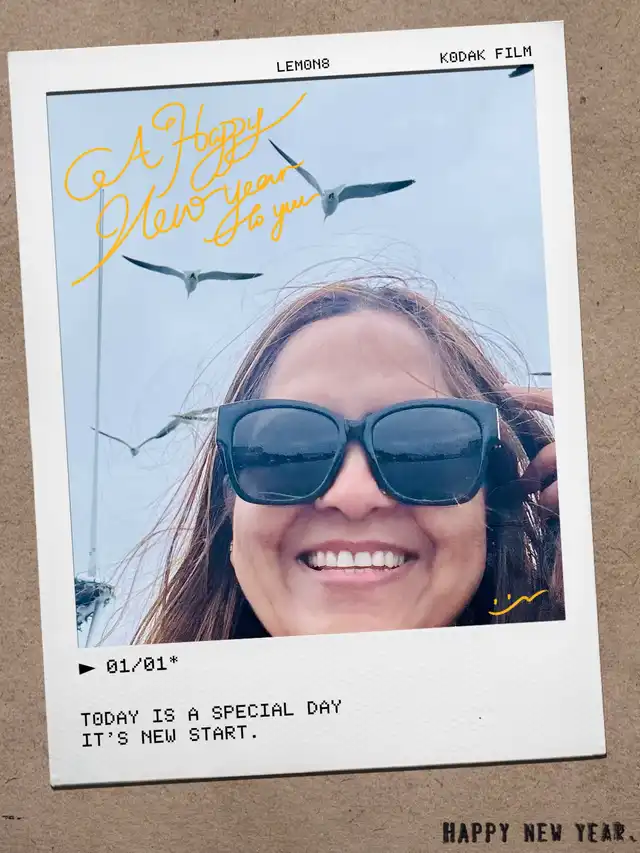 LEMON8 KODAK FILM
A Happy
New year
to you
► 01/01*
TODAY IS A SPECIAL DAY
IT'S NEW START.
HAPPY NEW YEAR.